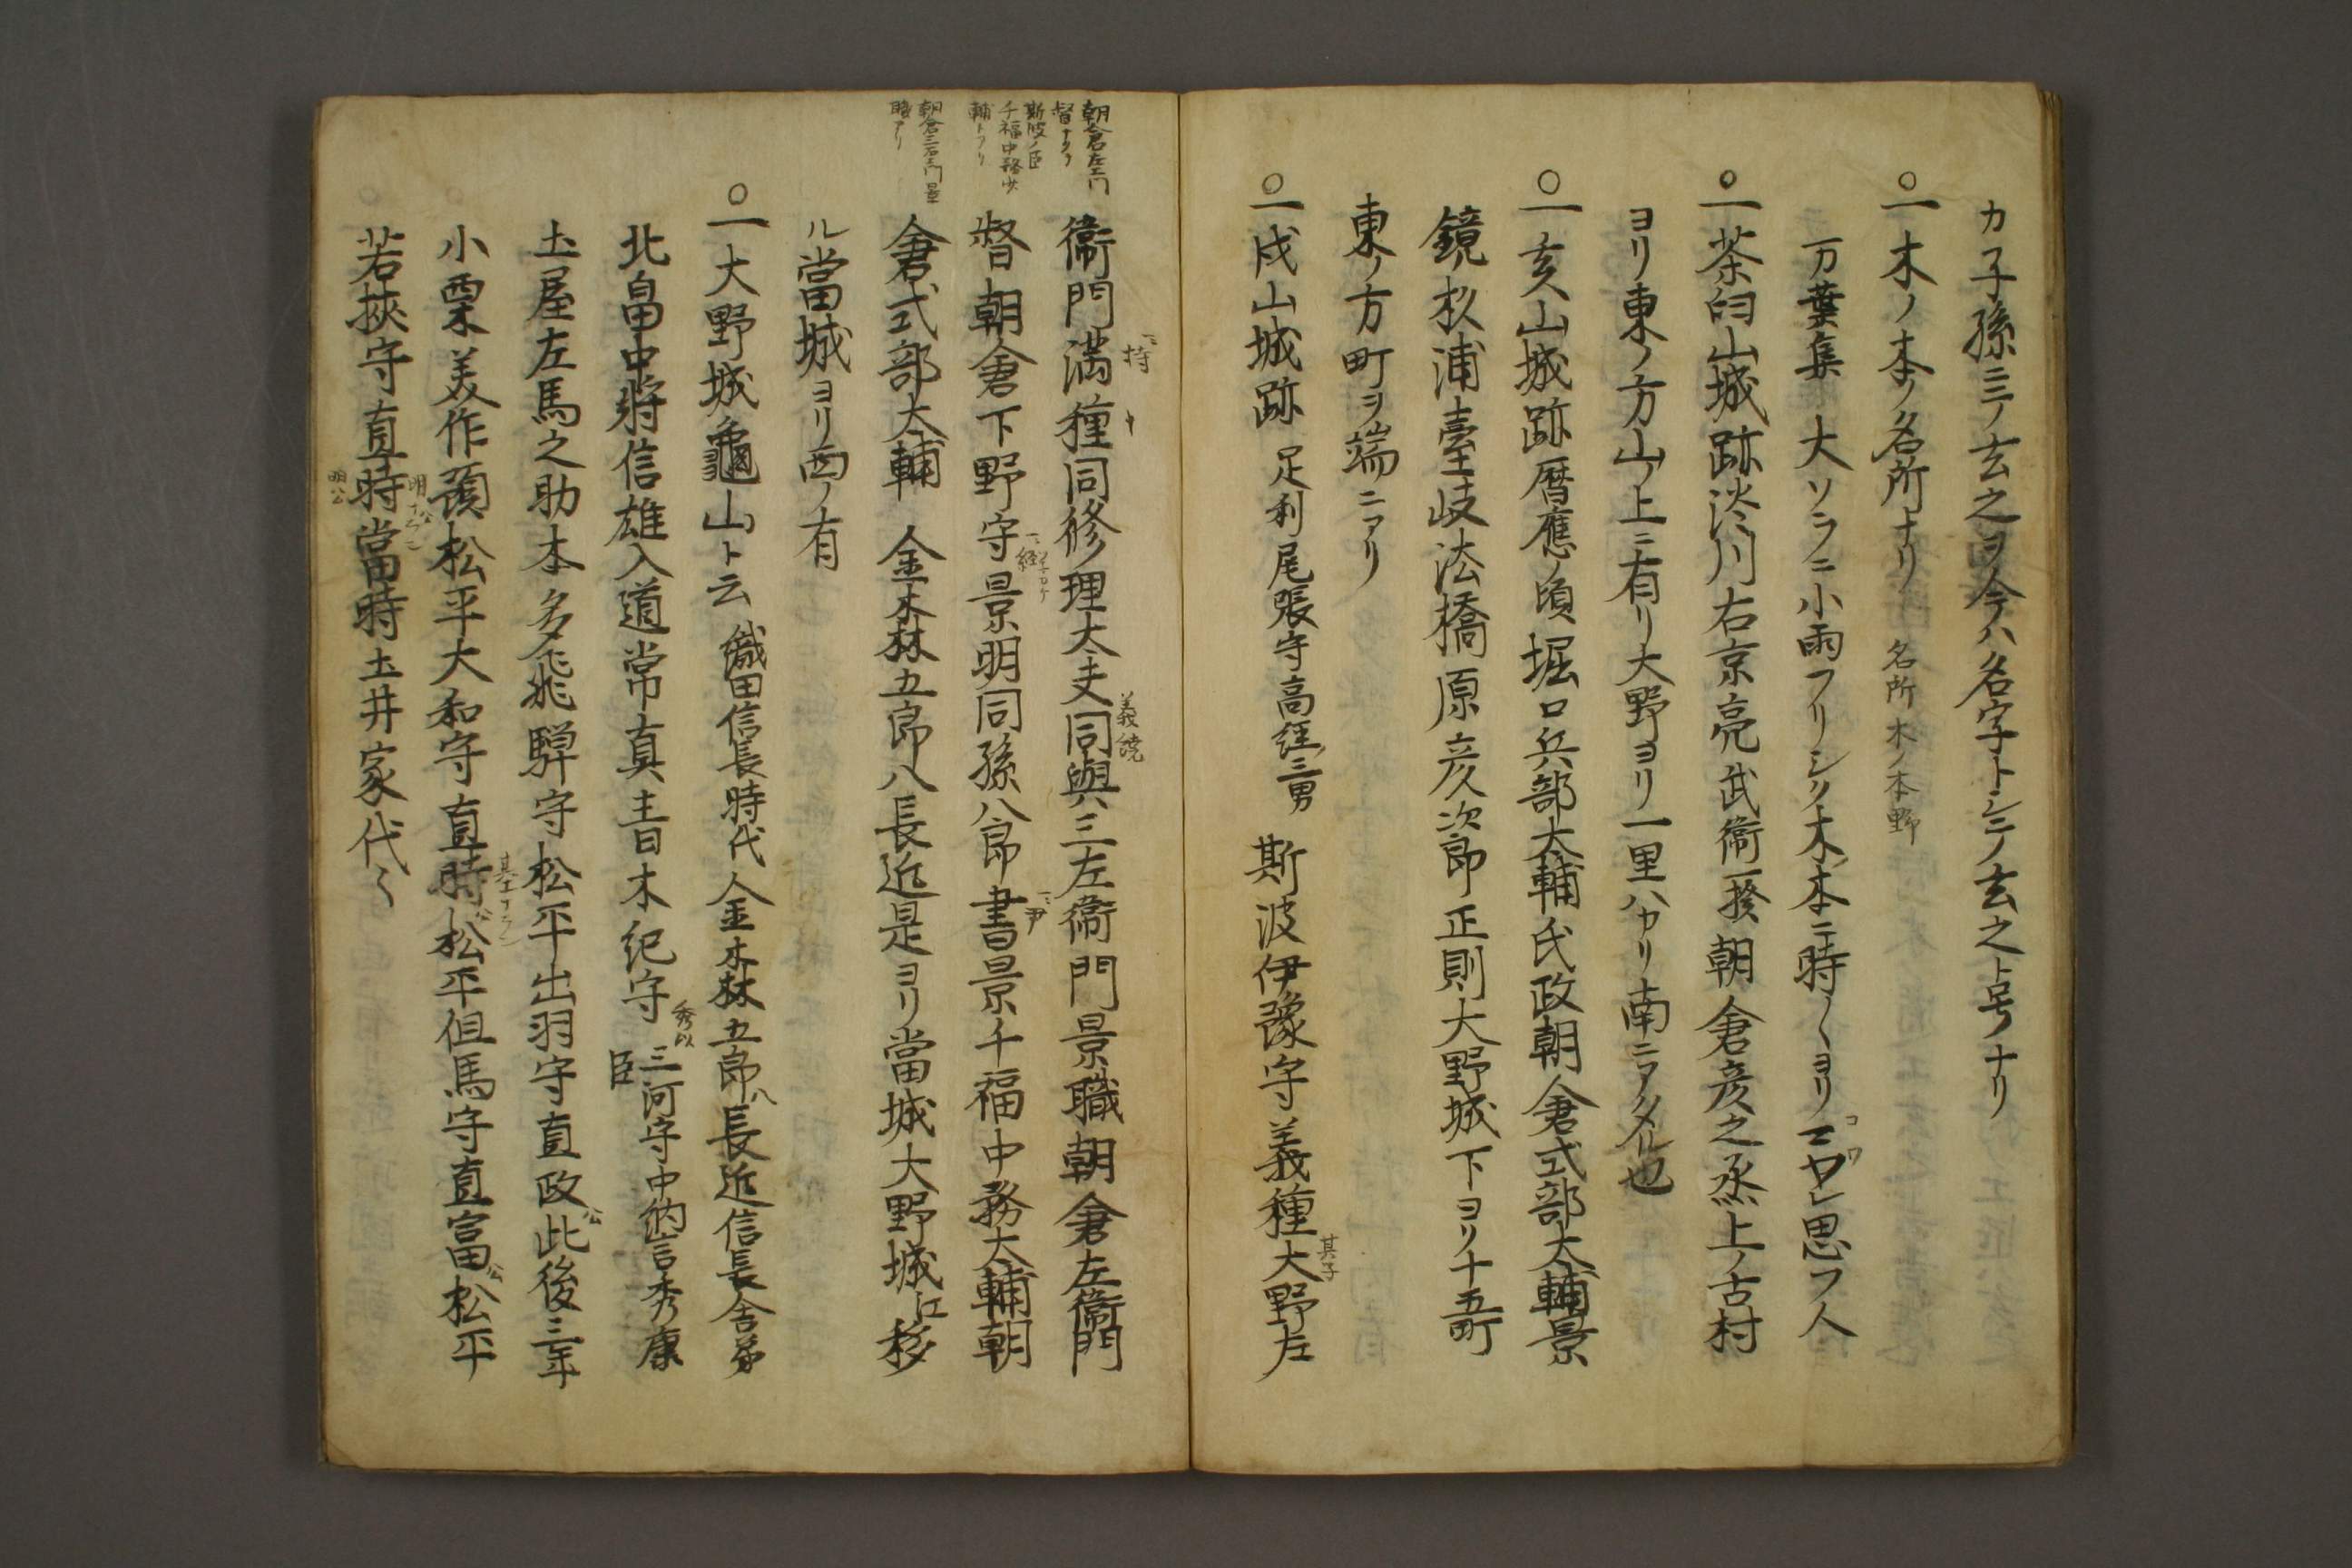 カ子孫ニテ玄之ヲ今ハ名字トシテ玄之ト号ナリ
〇一木ノ本ノ名所ナリ 名所木ノ本野
万葉集 大ソラニ小雨フリシク木ノ本ニ時〱ヨリ 思フ人
〇一茶臼山城跡淡川右京亮武衛一揆朝倉彦之丞上ノ古村
ヨリ東ノ方山ノ上ニ有リ大野ヨリ一里ハカリ南ニアタル也
〇一亥山城跡暦應ノ頃堀口兵部太輔氏政朝倉式部太輔景
鏡杉浦壹岐法橋原彦次郎正則大野城下ヨリ十五町
東ノ方町ヲ端ニアリ
〇一戌山城跡 足利尾張守高経ノ三男 斯波伊豫守義種 其子 大野左
朝倉左ヱ門
督ナリ
斯波ノ臣
千福中務少
輔トアリ
朝倉三右ヱ門景
職アリ
衛門満種 持 同修理太夫 義縄 同與三左衛門景職朝倉左衛門
督朝倉下野守 経 景明同孫八郎 尹 書景千福中務大輔朝
倉式部太輔 金森五郎八長近是ヨリ當城大野城江移
ル當城ヨリ西ノ有
〇一大野城龜山ト云 織田信長時代 金森五郎八長近信長舎弟
北畠中將信雄入道常真青木紀守 秀以 三河守中納言秀康
臣
土屋左馬之助本多飛騨守松平出羽守直政公此後三年
小栗美作預松平大和守直時 基 公松平但馬守直富公松平
若挾守直時 明 當時土井家代〱
明公